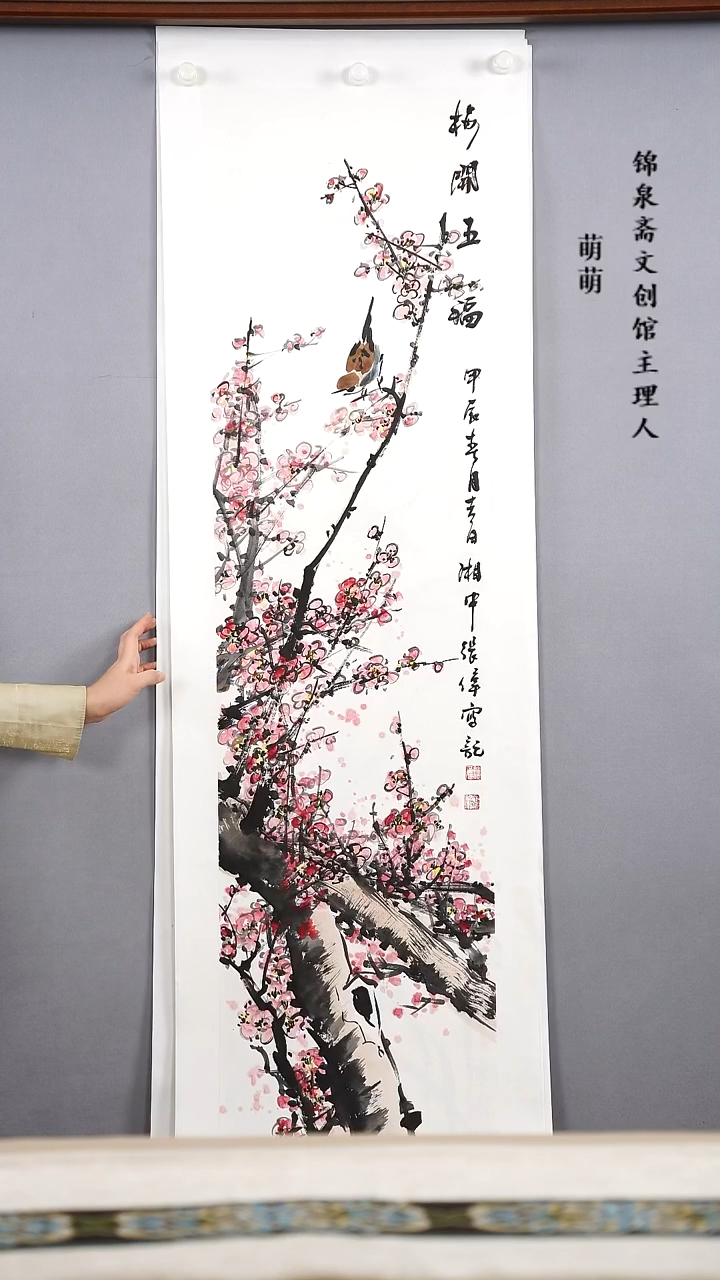 锦泉斋文创馆主理人
萌萌
梅開五福
甲辰春月吉日湘中張偉寫記